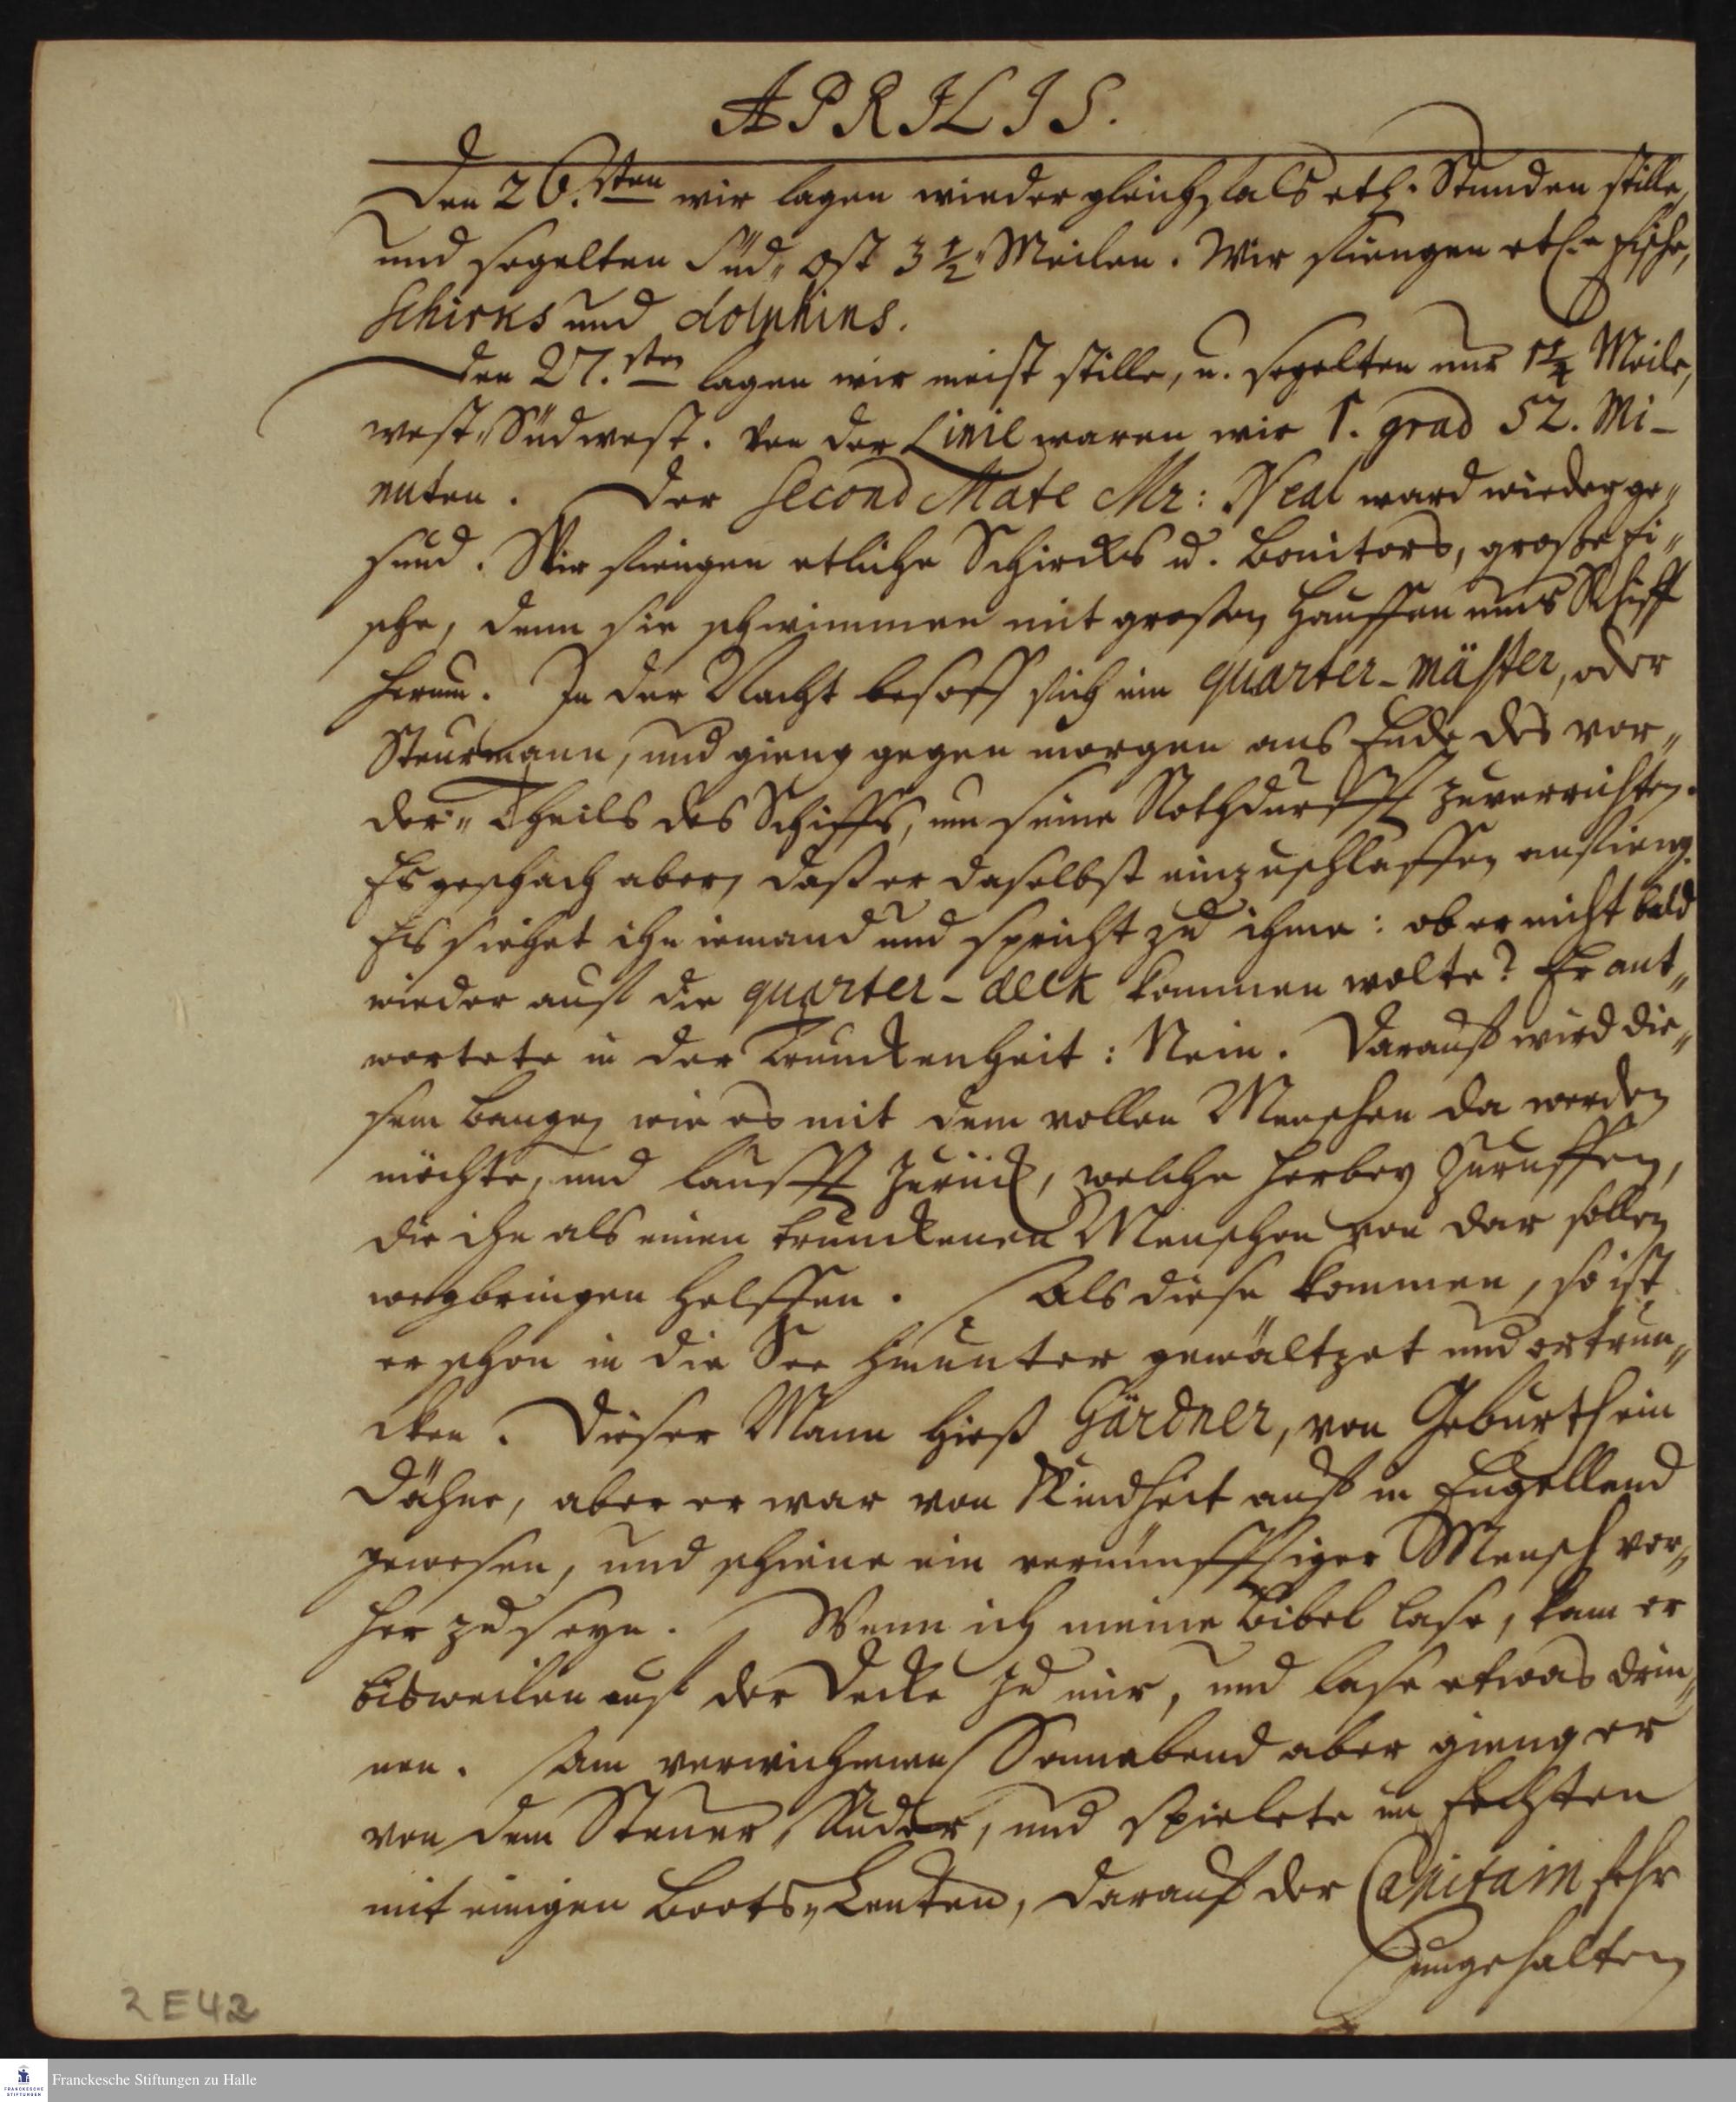 APRILIS.
Den 26.sten wir lagen wieder gleichfals etl. Stunden stille,
und segelten Süd„Ost 3 1/2 Meilen. Wir fiengen etl.e Fische,
Schirks und dolphins.
Den 27.sten lagen wir meist stille, u. segelten nur 1 1/4 Meile,
west„Südwest. Von der Linie waren wir 1. grad 52. Mi-
nuten. Der second Mate Mr: Neal ward wieder ge„
sund. Wir fiengen etliche Schircks u. Bonitors, große Fi„
sche, denn sie schwimmen mit großen Hauffen ums Schiff
herum. In der Nacht besoff sich ein quarter-mäster, oder
Steurmann, und gieng gegen morgen ans Ende des vor„
der„Theils des Schiffs, um seine Nothdurfft zuverrichten.
Es geschach aber, daß er daselbst einzuschlaffen anfieng.
Es siehet ihn iemand und spricht zu ihme: ob er nicht bald
wieder auf die quarter-deck kommen wolte? Er ant„
wortete in der Trunckenheit: Nein. Darauf wird die„
sem bange, wie es mit dem vollen Menschen da werden
möchte, und laufft zurück, welche herbey zuruffen,
die ihn als einen trunckenen Menschen von dar sollen
wegbringen helffen. Als diese kommen, so ist
er schon in die See hinunter gewältzet und ertrun„
cken. Dieser Mann hieß Gärdner, von Geburth ein
Dähne, aber er war von Kindheit auf in Engelland
gewesen, und schiene ein vernünfftiger Mensch vor„
her zu seyn. Wenn ich meine Bibel lase, kam er
bisweilen auf der Decke zu mir, und lase etwas drin„
nen. Am verwichenen Sonnabend aber gieng er
von dem Steuer„Ruder, und spielete im Fechten
mit einigen Boots„Leuten, darauf der Capitain sehr
ungehalten
2 E 42
Franckesche Stiftungen zu Halle
FRANCKESCHE
STIFTUNGEN